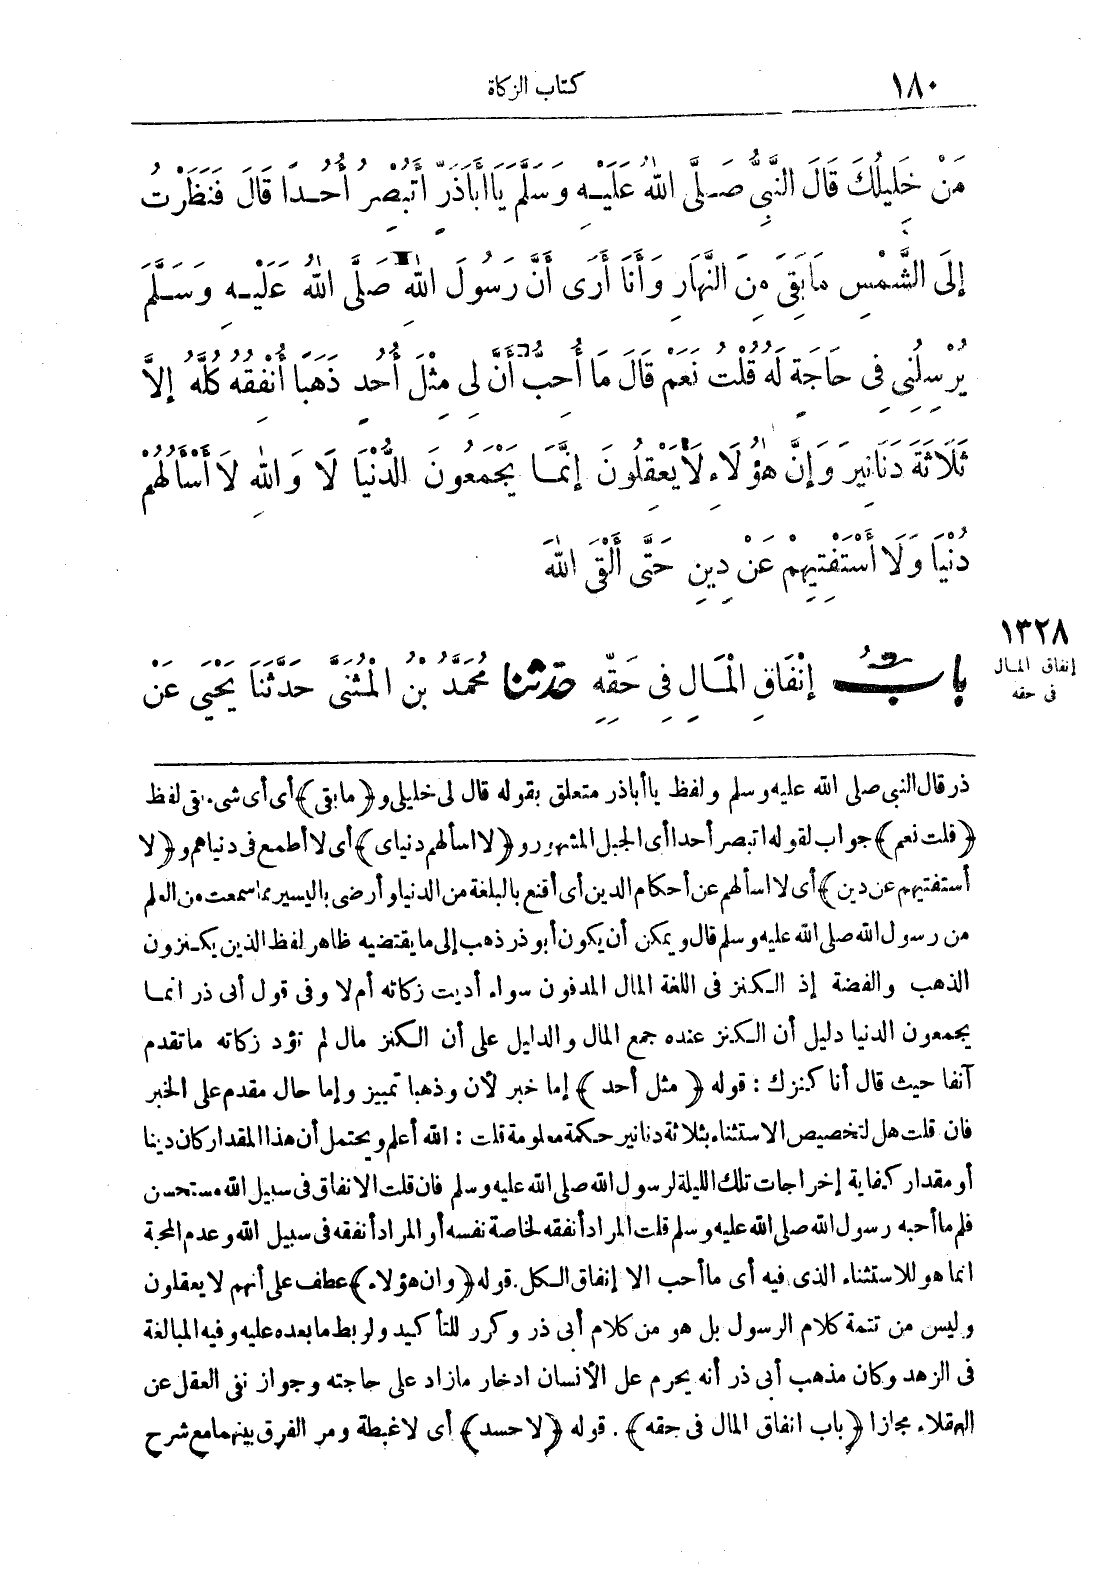 ١٨٠
كتاب الزكاة
مَنْ خَلِيلُكَ قَالَ النَّبِيُّ صَلَّى اللهُ عَلَيْهِ وَسَلَّمَ يَا أَبَا ذَرٍّ أَتُبْصِرُ أُحُدًا قَالَ فَنَظَرْتُ
إِلَى الشَّمْسِ مَا بَقِيَ مِنَ النَّهَارِ وَأَنَا أُرَى أَنَّ رَسُولَ اللهِ صَلَّى اللهُ عَلَيْهِ وَسَلَّمَ
يُرْسِلُنِي فِي حَاجَةٍ لَهُ قُلْتُ نَعَمْ قَالَ مَا أُحِبُّ أَنَّ لِي مِثْلَ أُحُدٍ ذَهَبًا أُنْفِقُهُ كُلَّهُ إِلَّا
ثَلَاثَةَ دَنَانِيرَ وَإِنَّ هٰؤُلَاءِ لَا يَعْقِلُونَ إِنَّمَا يَجْمَعُونَ الدُّنْيَا لَا وَاللهِ لَا أَسْأَلُهُمْ
دُنْيَا وَلَا أَسْتَفْتِيهِمْ عَنْ دِينٍ حَتَّى أَلْقَى اللهَ
١٣٢٨
إنفاق المال
فى حقه
بَابُ إِنْفَاقِ الْمَالِ فِي حَقِّهِ حدثنا مُحَمَّدُ بْنُ الْمُثَنَّى حَدَّثَنَا يَحْيَى عَنْ
ذر قال النبى صلى الله عليه وسلم ولفظ يا أباذر متعلق بقوله قال لى خليلى و﴿ما بقى﴾ أى أى شىء بقى لفظ
﴿قلت نعم﴾ جواب لقوله اتبصر أحدا أى الجبل المشهور و﴿لا اسألهم دنياى﴾ أى لا أطمع فى دنياهم و﴿لا
أستفتيهم عن دين﴾ أى لا اسألهم عن أحكام الدين أى أقنع بالبلغة من الدنيا وأرضى باليسير مما سمعت من العلم
من رسول الله صلى الله عليه وسلم قال ويمكن أن يكون أبو ذر ذهب إلى ما يقتضيه ظاهر لفظ الذين يكنزون
الذهب والفضة إذ الكنز فى اللغة المال المدفون سواء أديت زكاته أم لا وفى قول أبى ذر انما
يجمعون الدنيا دليل أن الكنز عنده جمع المال والدليل على أن الكنز مال لم تؤد زكاته ما تقدم
آنفا حيث قال أنا كنزك : قوله ﴿مثل أحد﴾ إما خبر لأن وذهبا تمييز وإما حال مقدم على الخبر
فان قلت هل لتخصيص الاستثناء بثلاثة دنانير حكمة معلومة قلت : الله أعلم ويحتمل أن هذا المقدار كان دينا
أو مقدار كفاية إخراجات تلك الليلة لرسول الله صلى الله عليه وسلم فان قلت الانفاق فى سبيل الله مستحسن
فلم ما أحبه رسول الله صلى الله عليه وسلم قلت المراد أنفقه لخاصة نفسه أو المراد أنفقه فى سبيل الله وعدم المحبة
انما هو للاستثناء الذى فيه أى ما أحب الا إنفاق الكل . قوله ﴿وان هؤلاء﴾ عطف على أنهم لا يعقلون
وليس من تتمة كلام الرسول بل هو من كلام أبى ذر وكرر للتأكيد ولربط ما بعده عليه وفيه المبالغة
فى الزهد وكان مذهب أبى ذر أنه يحرم على الأنسان ادخار ما زاد على حاجته وجواز نفى العقل عن
العقلاء مجازا ﴿باب انفاق المال فى حقه﴾ . قوله ﴿لا حسد﴾ أى لا غبطة ومر الفرق بينهما مع شرح